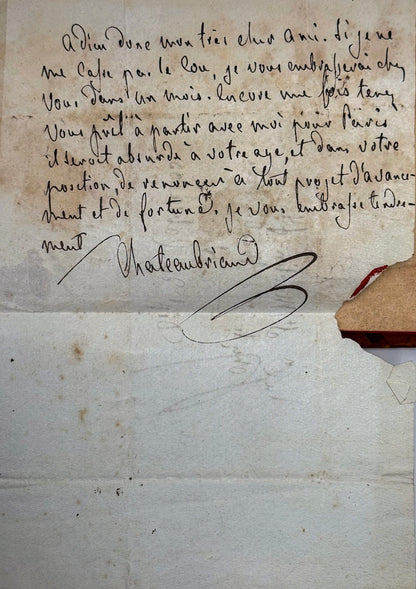 adieu donc mon très cher ami. Si je ne
me casse pas le cou, je vous embrasserai chez
vous dans un mois. Encore une fois tenez
vous prêt à partir avec moi pour Paris
il seroit absurde à votre age, et dans votre
position, de renoncer à tout projet d'avance-
ment et de fortune. je vous embrasse tendre-
ment
Chateaubriand